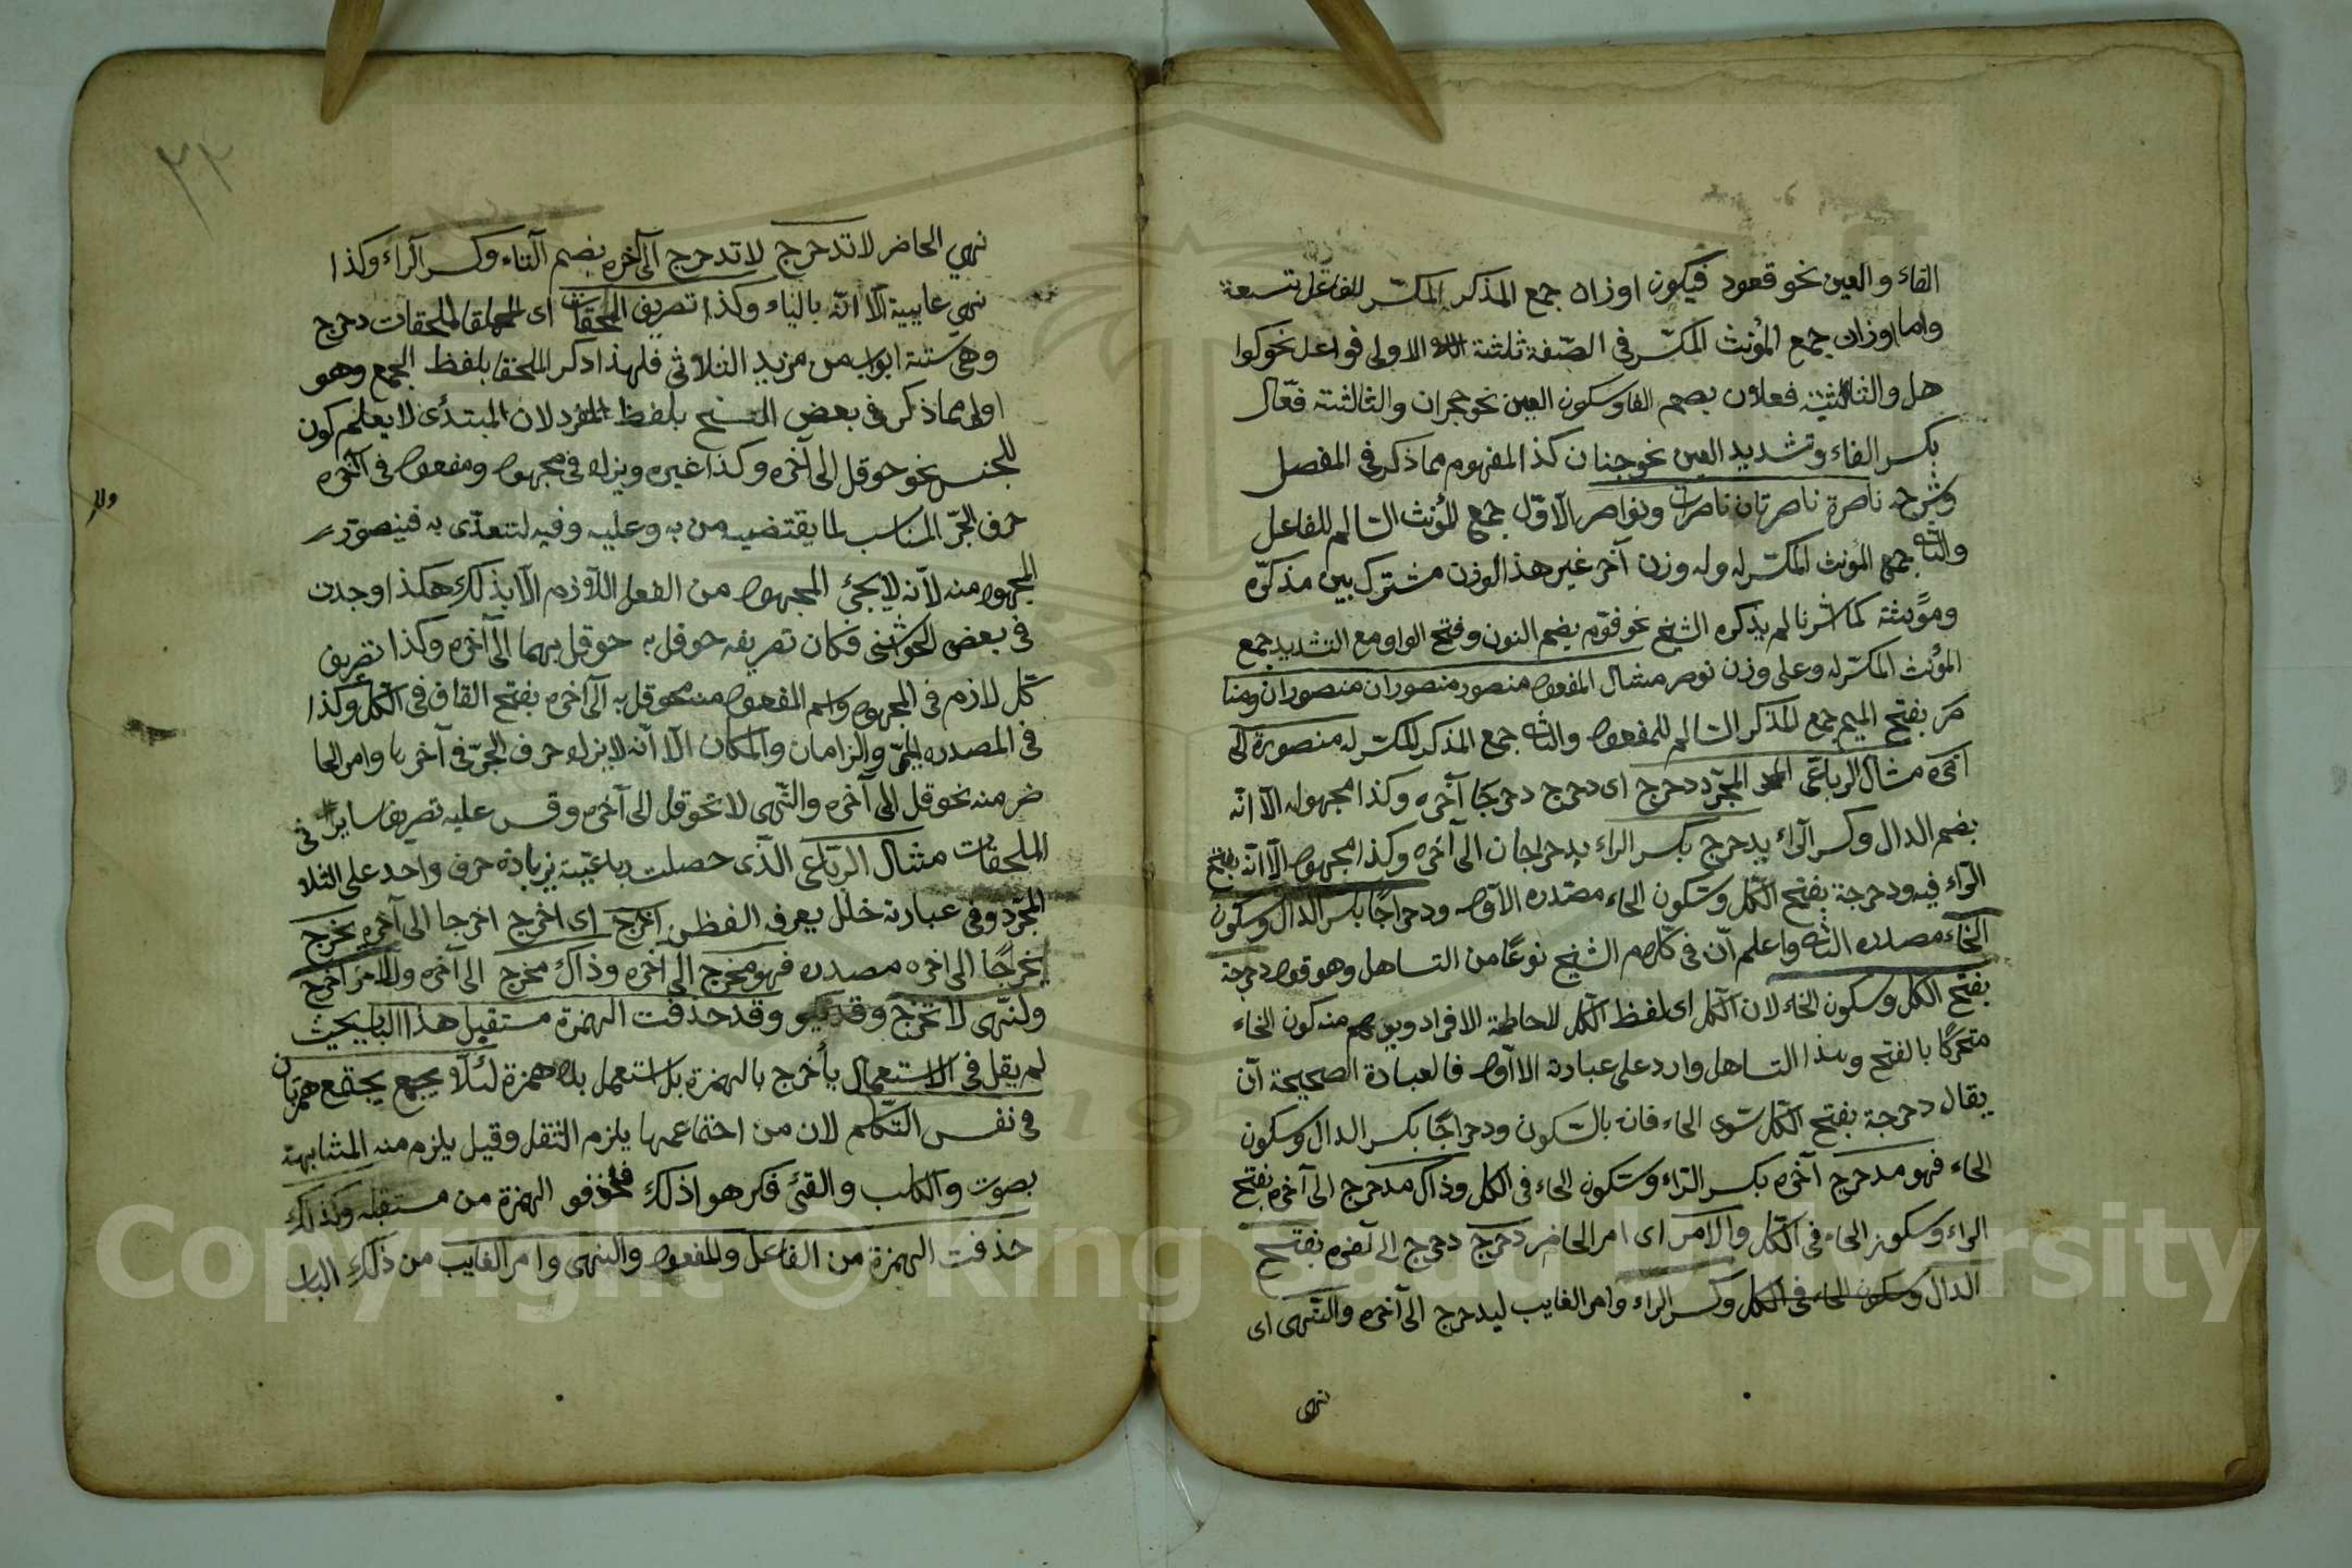 الفاء والعين نحو قعود فيكون اوزان جمع المذكر المكسّر للفاعل تسعة
واما اوزان جمع المؤنث المكسّر فى الصّفة ثلثة الاولى فواعل نحو كوا
هل والثانية فعلان بضم الفا وسكون العين نحو حجران والثالثة فعّال
بكسر الفاء وتشديد العين نحو جنان كذا المفهوم مما ذكر فى المفصل
وشرحه ناصرة ناصرتان ناصرات ونواصر الاوّل جمع المؤنث السالم للفاعل
والثانى جمع المؤنث المكسّر له وله وزن آخر غير هذا الوزن مشترك بين مذكره
ومؤنثه كما اشرنا لم يذكره الشيخ نحو قوّم بضم النون وفتح الواو مع التشديد جمع
المؤنث المكسّر له وعلى وزن نوصر مثال المفعول منصور منصوران منصوران ومنا
صر بفتح الميم جمع المذكر السالم للمفعول والثانى جمع المذكر المكسّر له منصورة الى
آخره مثال الرباعى المجرّد دحرج اى دحرج دحرجا آخره وكذا مجهوله الّا انّه
بضم الدال وكسر الرّاء يدحرج بكسر الراء يدحراجان الى آخره وكذا مجهوله الّا انّه بفتح
الرّاء فيه ودحرجة بفتح الكل وسكون الحاء مصدره الاوّل ودحراجًا بكسر الدال وسكون
الحاء مصدره الثانى واعلم انّ فى كلام الشيخ نوعًا من التساهل وهو قوله دحرجة
بفتح الكل وسكون الخاء لان الكل اى لفظ الكل للاحاطة الافراد ويوهم منه كون الخاء
متحركًا بالفتح وهذا التساهل وارد على عبارته الاوّل فالعبارة الصحيحة آن
يقال دحرجة بفتح الكل سوى الحاء فانه بالسّكون ودحراجًا بكسر الدال وسكون
الحاء فهو مدحرج آخره بكسر الرّاء وسكون الحاء فى الكل وذاك مدحرج الى آخره بفتح
الراء وسكون الحاء فى الكل والامر اى امر الحاضر دحرج دحرج الى آخره بفتح
الدال وسكون الحاء فى الكل وكسر الراء وامر الغايب ليدحرج الى آخره والنّهى اى
نهى
٣٢
نهي الحاضر لا تدحرج لا تدحرج الى آخره بضم التاء وكسر الرّاء وكذا
نهي غايبية الّا انّه بالياء وكذا تصريف الملحقات اى الملحقات دحرج
وهى ستة ابواب من مزيد الثلاثى فلهذا ذكر الملحقا بلفظ الجمع وهو
اولى مما ذكر فى بعض النسخ بلفظ المفرد لان المبتدئ لا يعلم كون
للجنس نحو حوقل الى آخره وكذا غيره ويزاد فى مجهول ومفعول فى آخره
حرف الجرّ المناسب لما يقتضيه من به وعليه وفيه لتتعدّى به فيتصوّر
المجهول منه لانه لا يجئ المجهول من الفعل اللازم الّا بذلك هكذا وجدت
فى بعض الحواشى فكان تصريفه حوقل به حوقل بهما الى آخره وكذا تصريف
كل لازم فى المجهول واسم المفعول منه محوقل به الى آخره بفتح القاف فى الكل وكذا
فى المصدر الميمىّ والزامان والمكان الّا انّه لا يزاد حرف الجرّ فى آخرها وامر الحا
ضر منه نحو قل الى آخره والنّهى لا تحوقل الى آخره وقس عليه تصريف ساير فى
الملحقات مثال الرّباعى الذى حصلت رباعيّته بزيادة حرف واحد على الثلا
المجرّد وفى عبارته خلل يعرف الفطن اخرج اى اخرج اخرجا الى آخره يخرج
يخرجًا الى اخره مصدره فهو مخرج الى آخره وذاك مخرج الى آخره والامر اخرج
ولنّهى لا تخرج وقد حذفت الهمزة مستقبل هذا الباب بحيث
لم يقل فى الاستعمال يأخرج بالهمزة بل استعمل بلا همزة لئلّا يجمع يجتمع همزتان
فى نفس التكلم لان من اجتماعهما يلزم الثقل وقيل يلزم منه المشابهة
بصوت والكلب والقئ فكرهوا ذلك فحذفو الهمزة من مستقبله وكذلك
حذفت الهمزة من الفاعل والمفعول والنهى وامر الغايب من ذلك الباب
Copyright © King Saud University